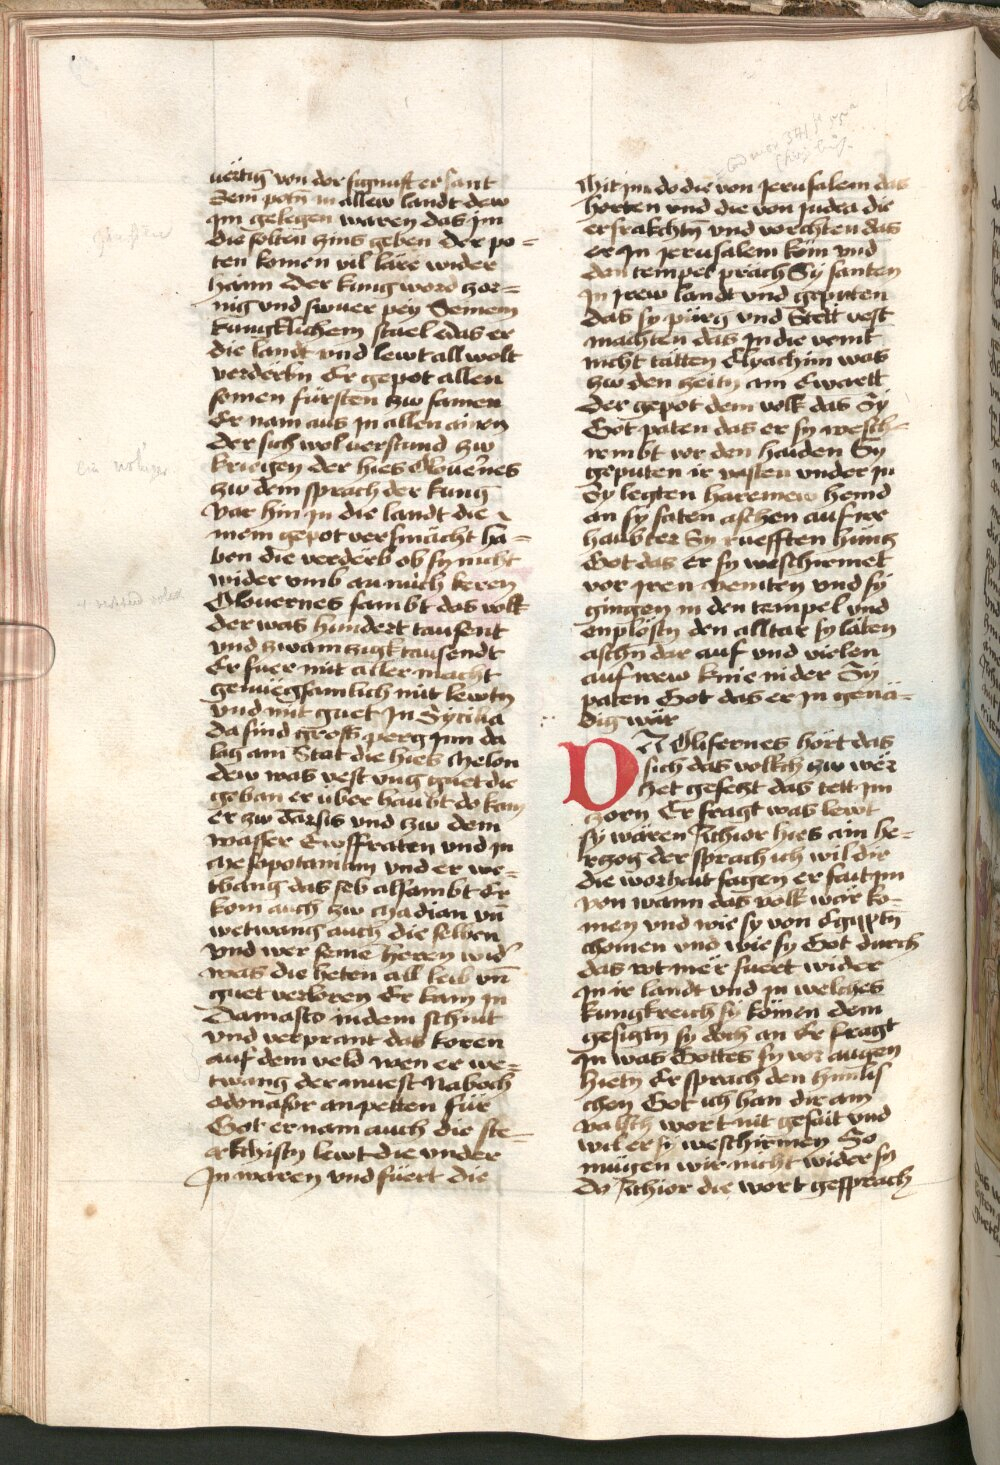 uertig von der signuft er sant
Sein potn in allew landt dew
Im gelegen waren das im
die solten zins geben der po=
ten komen vil läre wider
haim der kunig word zor=
nig vnd swuer pey Seinem
kungklichem stuel das er
die landt vnd lewt all wolt
verderbn Er gepot allen
seinen fürsten zw samen
Er nam aus In allen ainen
der sich wol verstund zw
kriegen der hies Olouernes
zw dem sprach der kunig
var hin In die landt die
mein gepot versmächt ha=
ben die verderb ob sy nicht
wider vmb an mich keren
Olouernes sambt das volk
der was hundert tausent
vnd zwainzigk tausendt
Er fuer mit aller macht
genuegsamlich mit lewtn
vnd mit guet In Sycilia
da sind gross perg Inn da
lag ain Stat die hies Melon
dew was vest vng guet die
geban er über haubt do kam
er zw Tarsis vnd zw dem
wasser Ewffraten vnd in
Mesopotaniam vnd er we=
twang das seb alssambt Er
kom auch zw Madian vn̄
wetwang auch die selben
vnd wer seine heren wid
was die heten all leib vn̄
guet verloren Er kam in
Damasco in dem schnit
vnd verprant das koren
auf dem veld wen er we=
twang der muest Naboch
odonasor anpetten für
Got er nam auch die ste=
rkchistn lewt die vnder
In waren vnd füert die
Mit im do die von Jerusalem das
horten vnd die von Judea die
ersrakchtn vnd vorchten das
er In Jerusalem köm vnd
den tempel präch Sy santen
In irew landt vnd geputen
das sy pürg vnd Stett vest
machten das In die veint
nicht tätten Elyachim was
zw den zeitn ain Ewartt
der gepot dem volk das Sy
Got paten das er sy wesch
iembt vor den haiden Sy
geputen ir vasten vnder in
Sy legten haremew hemd
an sy säten aschen auf ire
haubter Sy ruefften hinz
Got das er sy weschirmet
vor iren veinten vnd sy
gingen in den tempel vnd
enplöstn den alltar sy läten
aschn dar auf vnd vielen
auf irew knie nider Sy
paten Got das er In genä=
dig wär
DA Olifernes hört das
sich das volkch zw wer
het gesetzt das tett im
zorn Er fragt was lewt
sy wären Achior hies ain he=
rzog der sprach ich wil dir
die worhait sagen er sait im
von wann das volk wär ko=
men vnd wie sy von Egyptn̄
chomen vnd wie sy Got durch
das rot mer fuert wider
In ir landt vnd in welches
kungkreich sy kömen dem
gesigtn sy doch an Er fragt
In was Gottes sy vor augen
hietn Er sprach den himlis
chen Got ich han dir ain
valsch wort nit gesait vnd
wil er sy weschirmen So
mügen wir nicht wider sy
Do Achior die wort gesprach